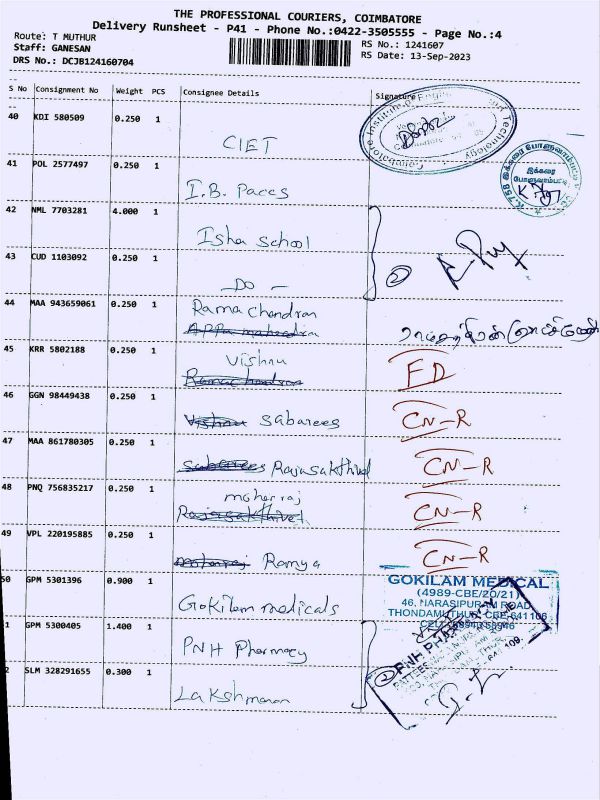 THE PROFESSIONAL COURIERS, COIMBATORE
Delivery Runsheet - P41 - Phone No.:0422-3505555 - Page No.:4
Route: T MUTHUR
RS No.: 1241607
Staff: GANESAN
RS Date: 13-Sep-2023
DRS No.: DCJB124160704
S No Consignment No Weight PCS Consignee Details Signature
40 KDI 580509 0.250 1
CIET
41 POL 2577497 0.250 1
I.B. Paccs
இக்கரை
42 NML 7703281 4.000 1
Isha School
43 CUD 1103092 0.250 1
- Do -
2
44 MAA 943659061 0.250 1
Rama chandran
45 KRR 5802188 0.250 1
Vishnu
Ramachandran
FD
46 GGN 98449438 0.250 1
Vishnu Sabarees
CN-R
47 MAA 861780305 0.250 1
Sabarees Rajasakthivel
CN-R
48 PNQ 756835217 0.250 1
moherraj
Rajasakthivel
CN-R
49 VPL 220195885 0.250 1
Ramya
CN-R
50 GPM 5301396 0.900 1
Gokilam medicals
GOKILAM MEDICAL
(4989-CBE/20/21)
46, NARASIPURAM ROAD
THONDAMUTHUR, CBE-641109
1 GPM 5300405 1.400 1
PNH Pharmacy
PNH PHARMACY
2
2 SLM 328291655 0.300 1
Lakshmanan